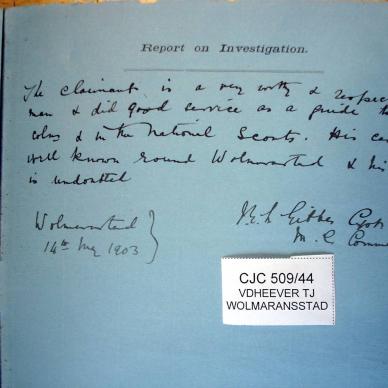 Report on Investigation.
The claimant is a very worthy & respec
man & did good service as a guide to
colns & in the National Scouts. His ca
well known round Wolmarstad & his
is undoubted
Wolmarstad
14th May 1903
Gibbs Capt
M. C. Comm
CJC 509/44
VDHEEVER TJ
WOLMARANSSTAD